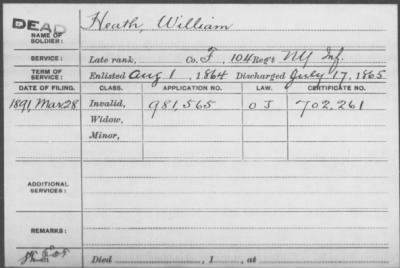 DEAD
NAME OF SOLDIER: Heath, William
SERVICE: Late rank, Co. F, 104 Reg't NY Inf.
TERM OF SERVICE: Enlisted Aug 1, 1864 Discharged July 17, 1865
DATE OF FILING. CLASS. APPLICATION NO. LAW. CERTIFICATE NO.
1891, Mar 28 Invalid, 981,565 O J 702,261
Widow,
Minor,
ADDITIONAL SERVICES:
REMARKS:
Died , 1 , at